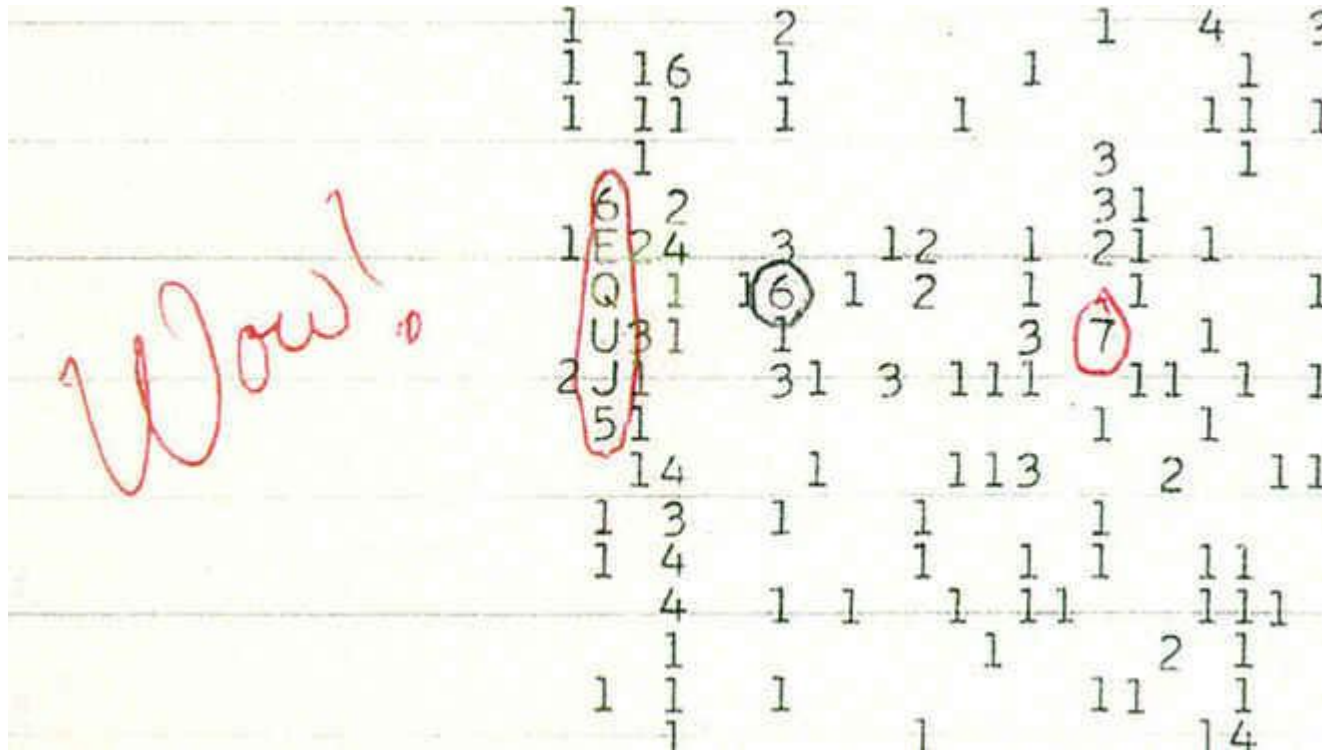 1 2 1 4 3
1 16 1 1 1
1 11 1 1 11 1
1 3 1
6 2 31
1E24 3 12 1 21 1
Q 1 16 1 2 1 11 1
U31 1 3 7 1
2J1 31 3 111 11 1 1
51 1 1
Wow!
14 1 113 2 11
1 3 1 1 1
1 4 1 1 1 11
4 1 1 1 11 111
1 1 2 1
1 1 1 11 1
1 1 14